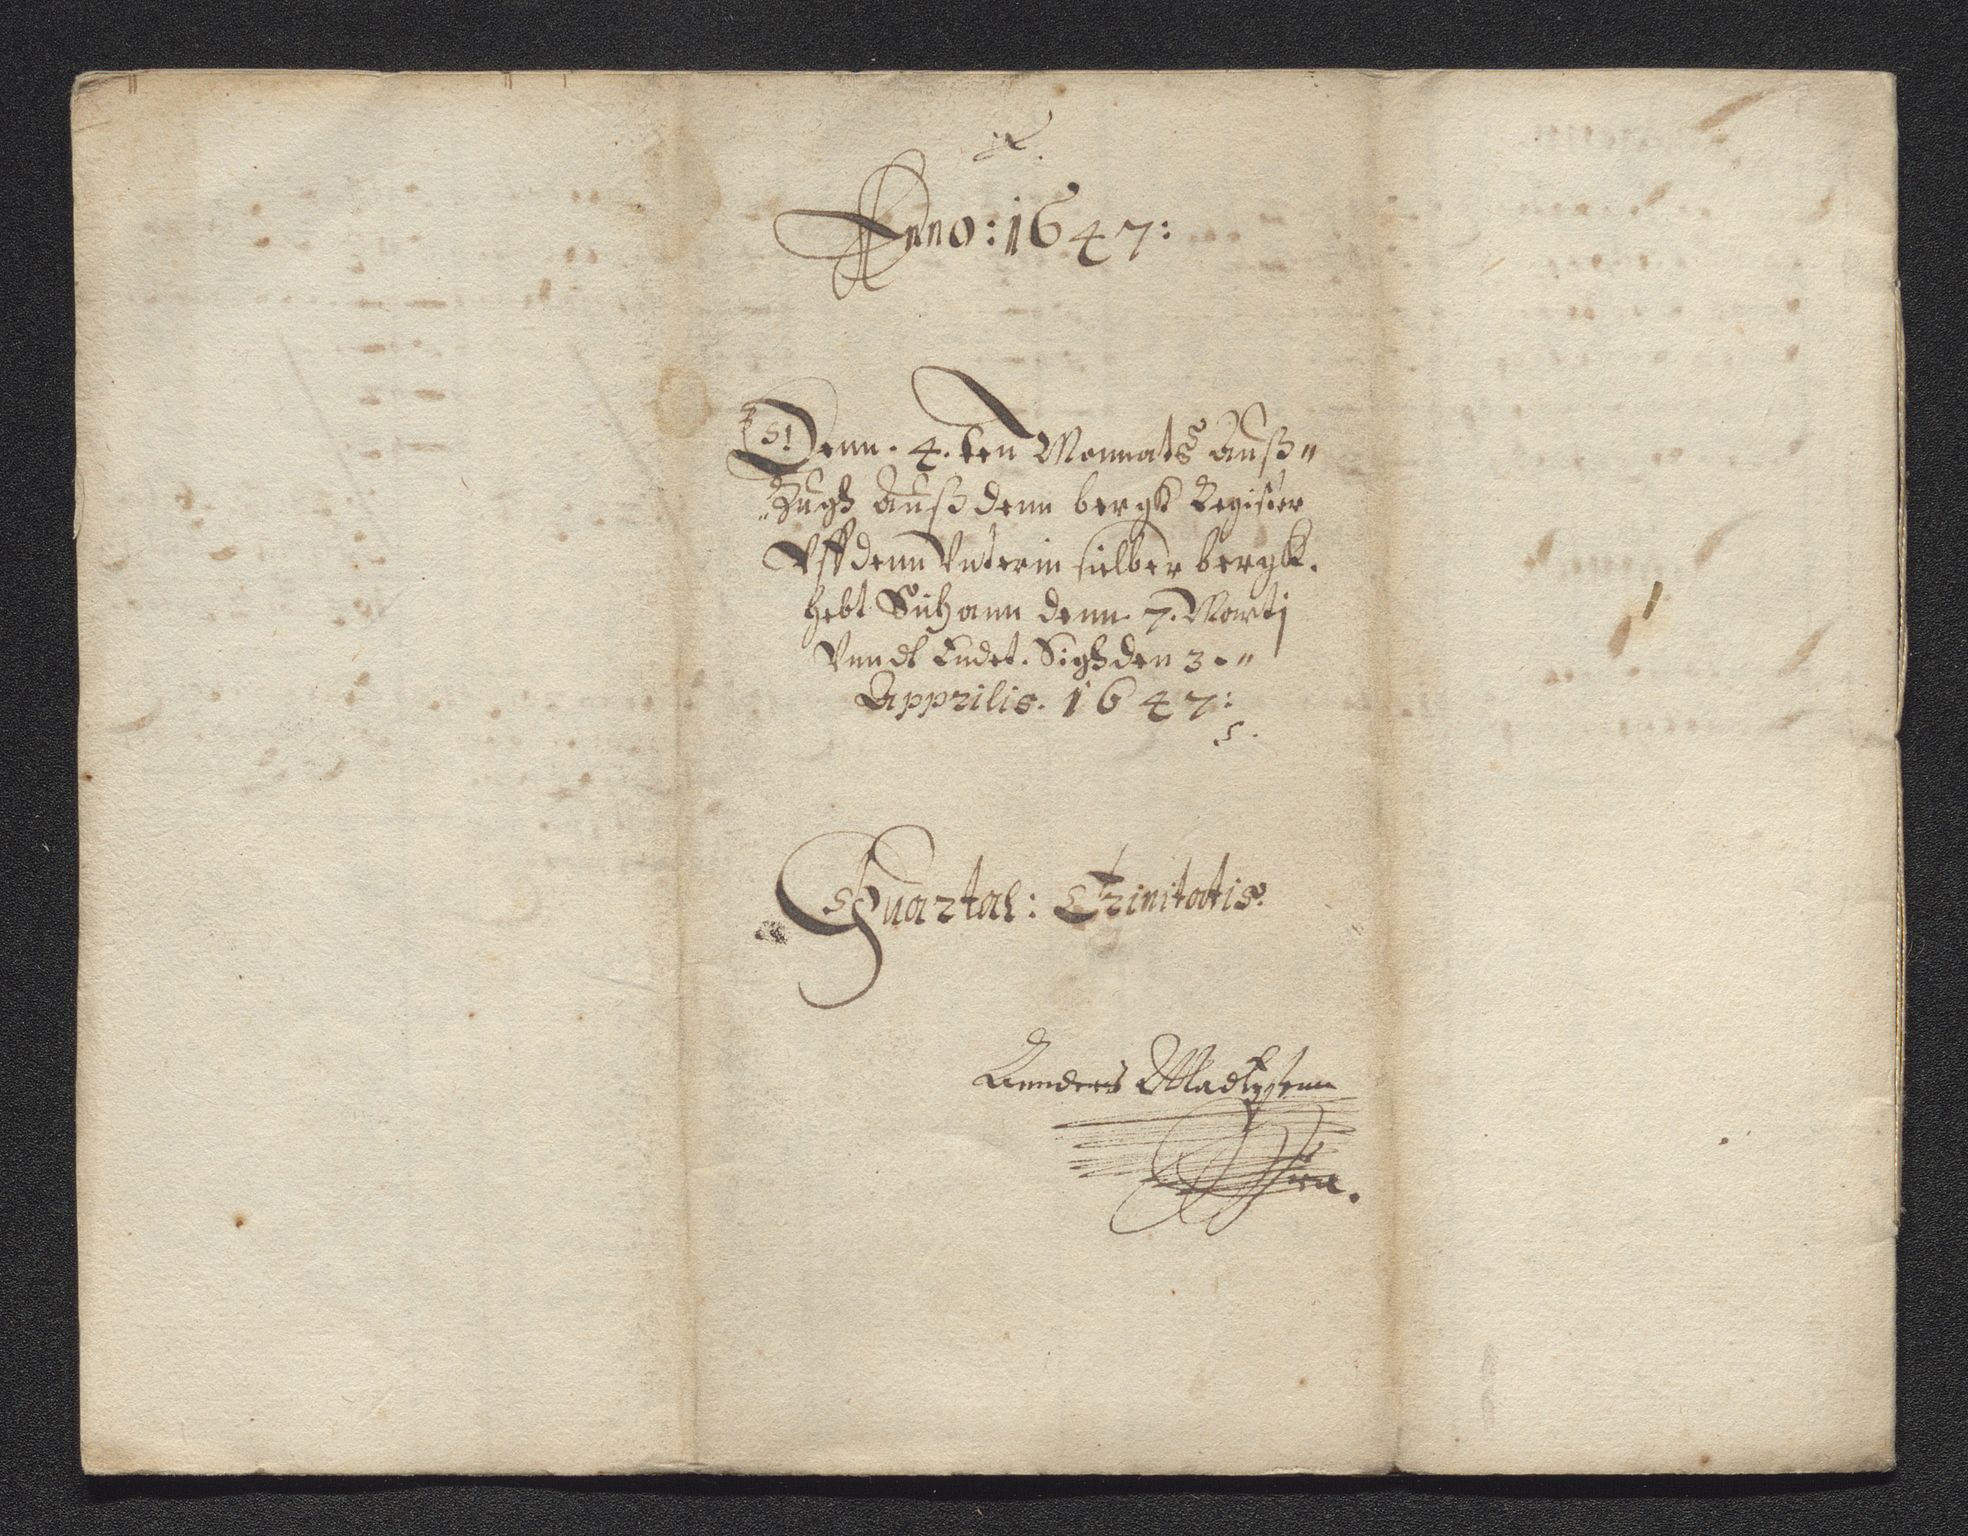 Anno: 1647:
Denn. 4. ten Monnats Auß„
„Zugh Auß denn bergk Register
Vff denn Vnterm silber bergk.
hebt Sich ann denn. 7. Martj
Vnndt Endet. Sigh den 3.„
Apprilis. 1647:
Quartal: Trinitatis.
Annders Madtzsenn